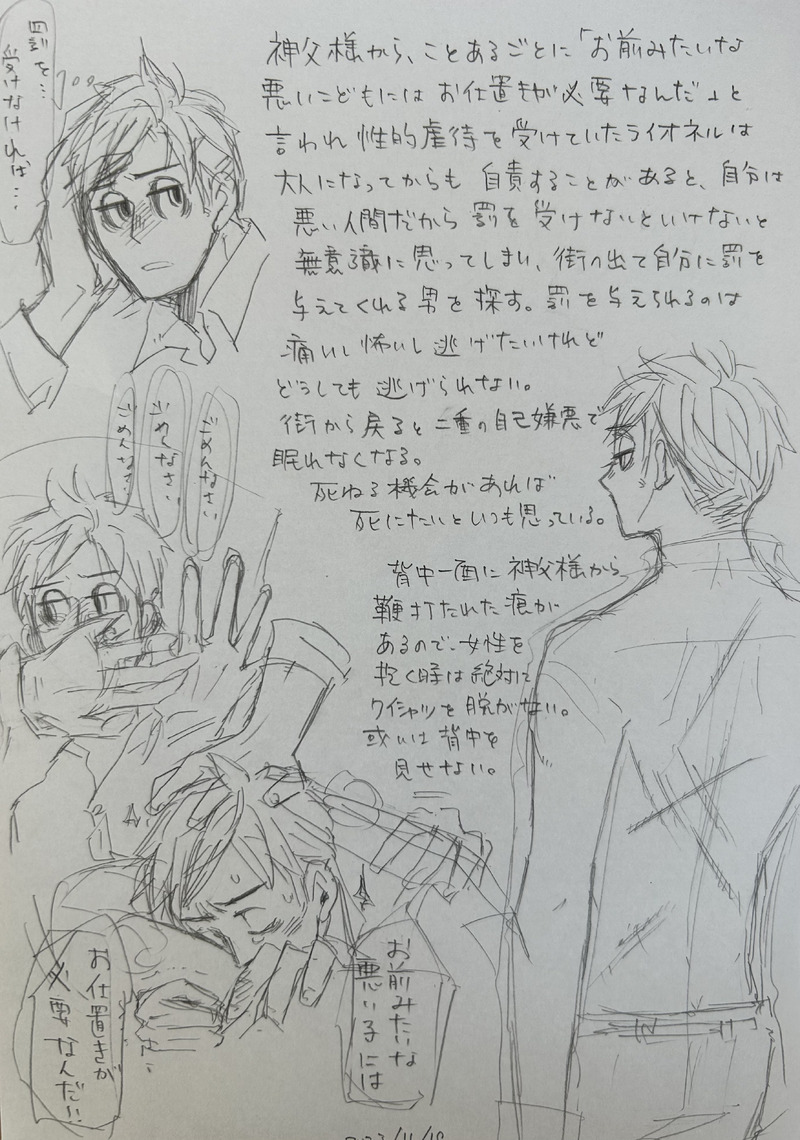 神父様から、ことあるごとに「お前みたいな
悪いこどもには お仕置きが必要なんだ」と
言われ 性的虐待を受けていたライオネルは
大人になってからも 自責することがあると、自分は
悪い人間だから 罰を受けないといけないと
無意識に思ってしまい、街へ出て自分に罰を
与えてくれる男を探す。罰を与えられるのは
痛いし怖いし逃げたいけれど
どうしても逃げられない。
街から戻ると二重の自己嫌悪で
眠れなくなる。
死ねる機会があれば
死にたいといつも思っている。
背中一面に神父様から
鞭打たれた痕が
あるので、女性を
抱く時は絶対に
ワイシャツを脱がない。
或いは背中を
見せない。
罰を…
受けなければ…
ごめんなさい
ごめんなさい
ごめんなさい
お前みたいな
悪い子には
お仕置きが
必要なんだ!!